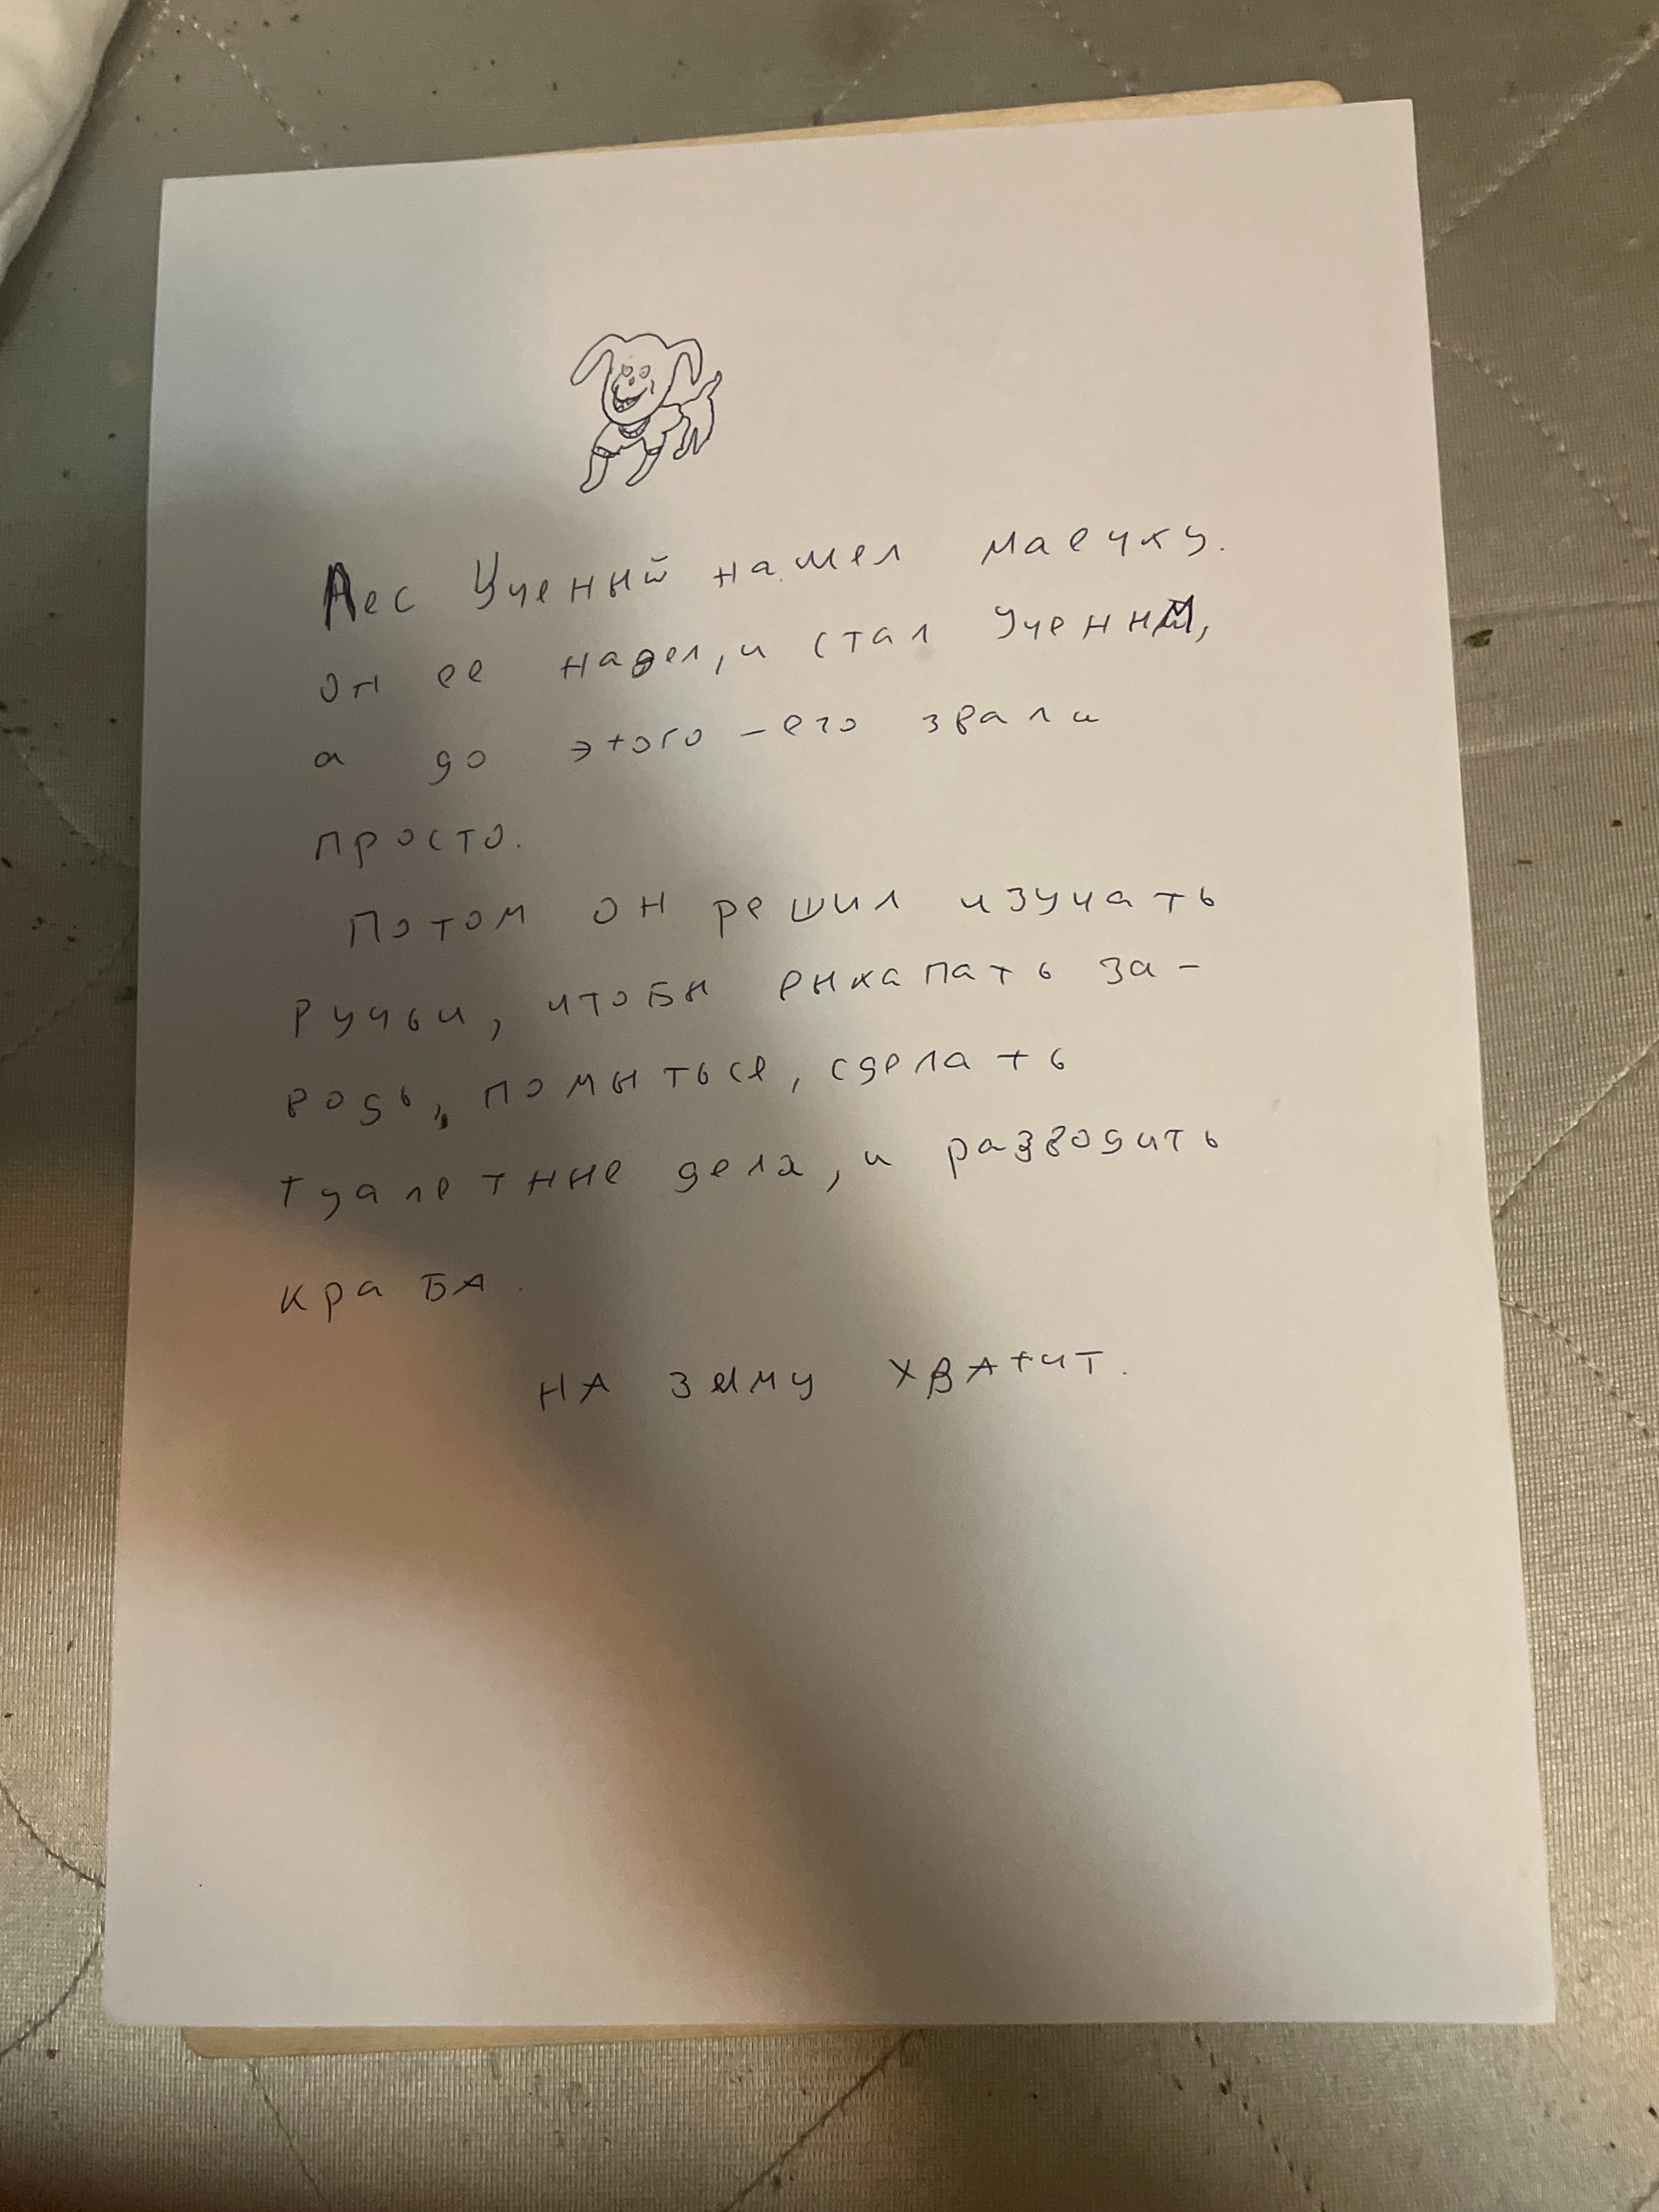 Пес Ученный нашел маечку.
он ее надел, и стал Ученным,
а до этого – его звали
просто.
Потом он решил изучать
ручьи, чтобы выкапать за-
водь, помыться, сделать
туалетные дела, и разводить
краба.
НА зиму хватит.